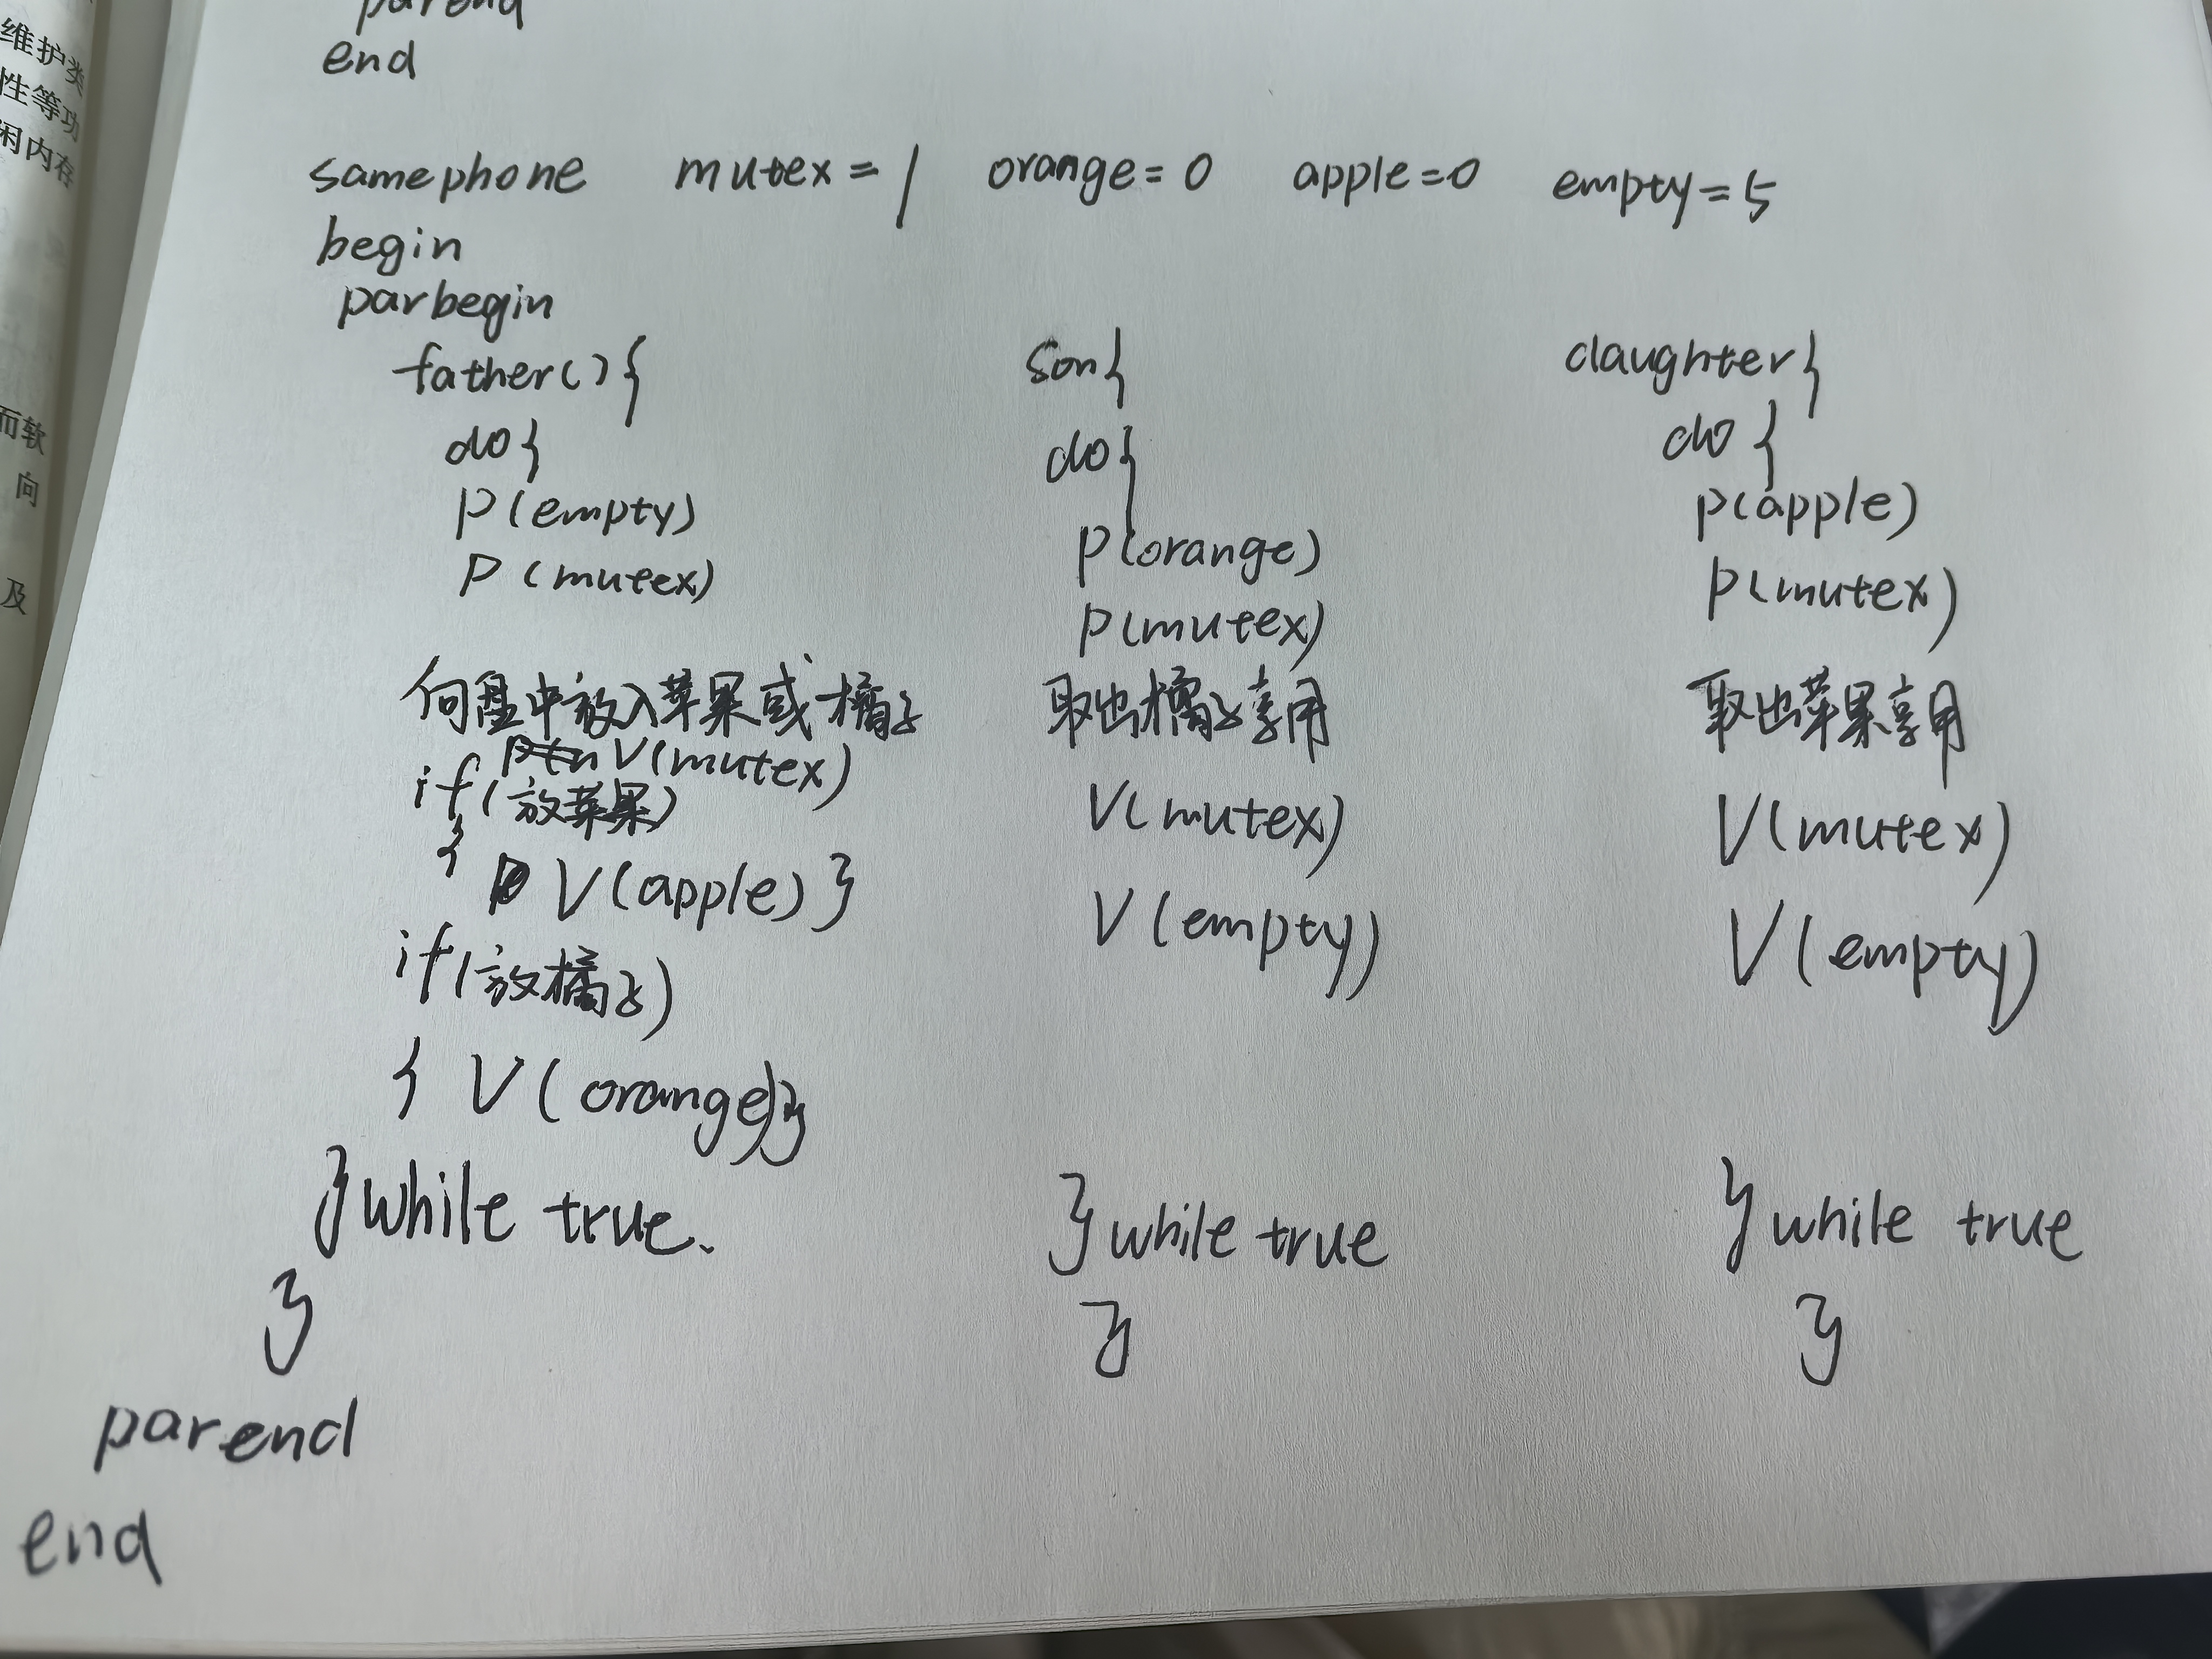 维护类
性等功
闲内存
而软
向
及
parend
end
samephone mutex=1 orange=0 apple=0 empty=5
begin
parbegin
father(){
do{
P(empty)
P(mutex)
向盘中放入苹果或橘子
V(mutex)
if(放苹果)
{ V(apple)}
if(放橘子)
{ V(orange)}
}while true.
}
son{
do{
P(orange)
P(mutex)
取出橘子享用
V(mutex)
V(empty)
}while true
}
daughter{
do{
P(apple)
P(mutex)
取出苹果享用
V(mutex)
V(empty)
}while true
}
parend
end